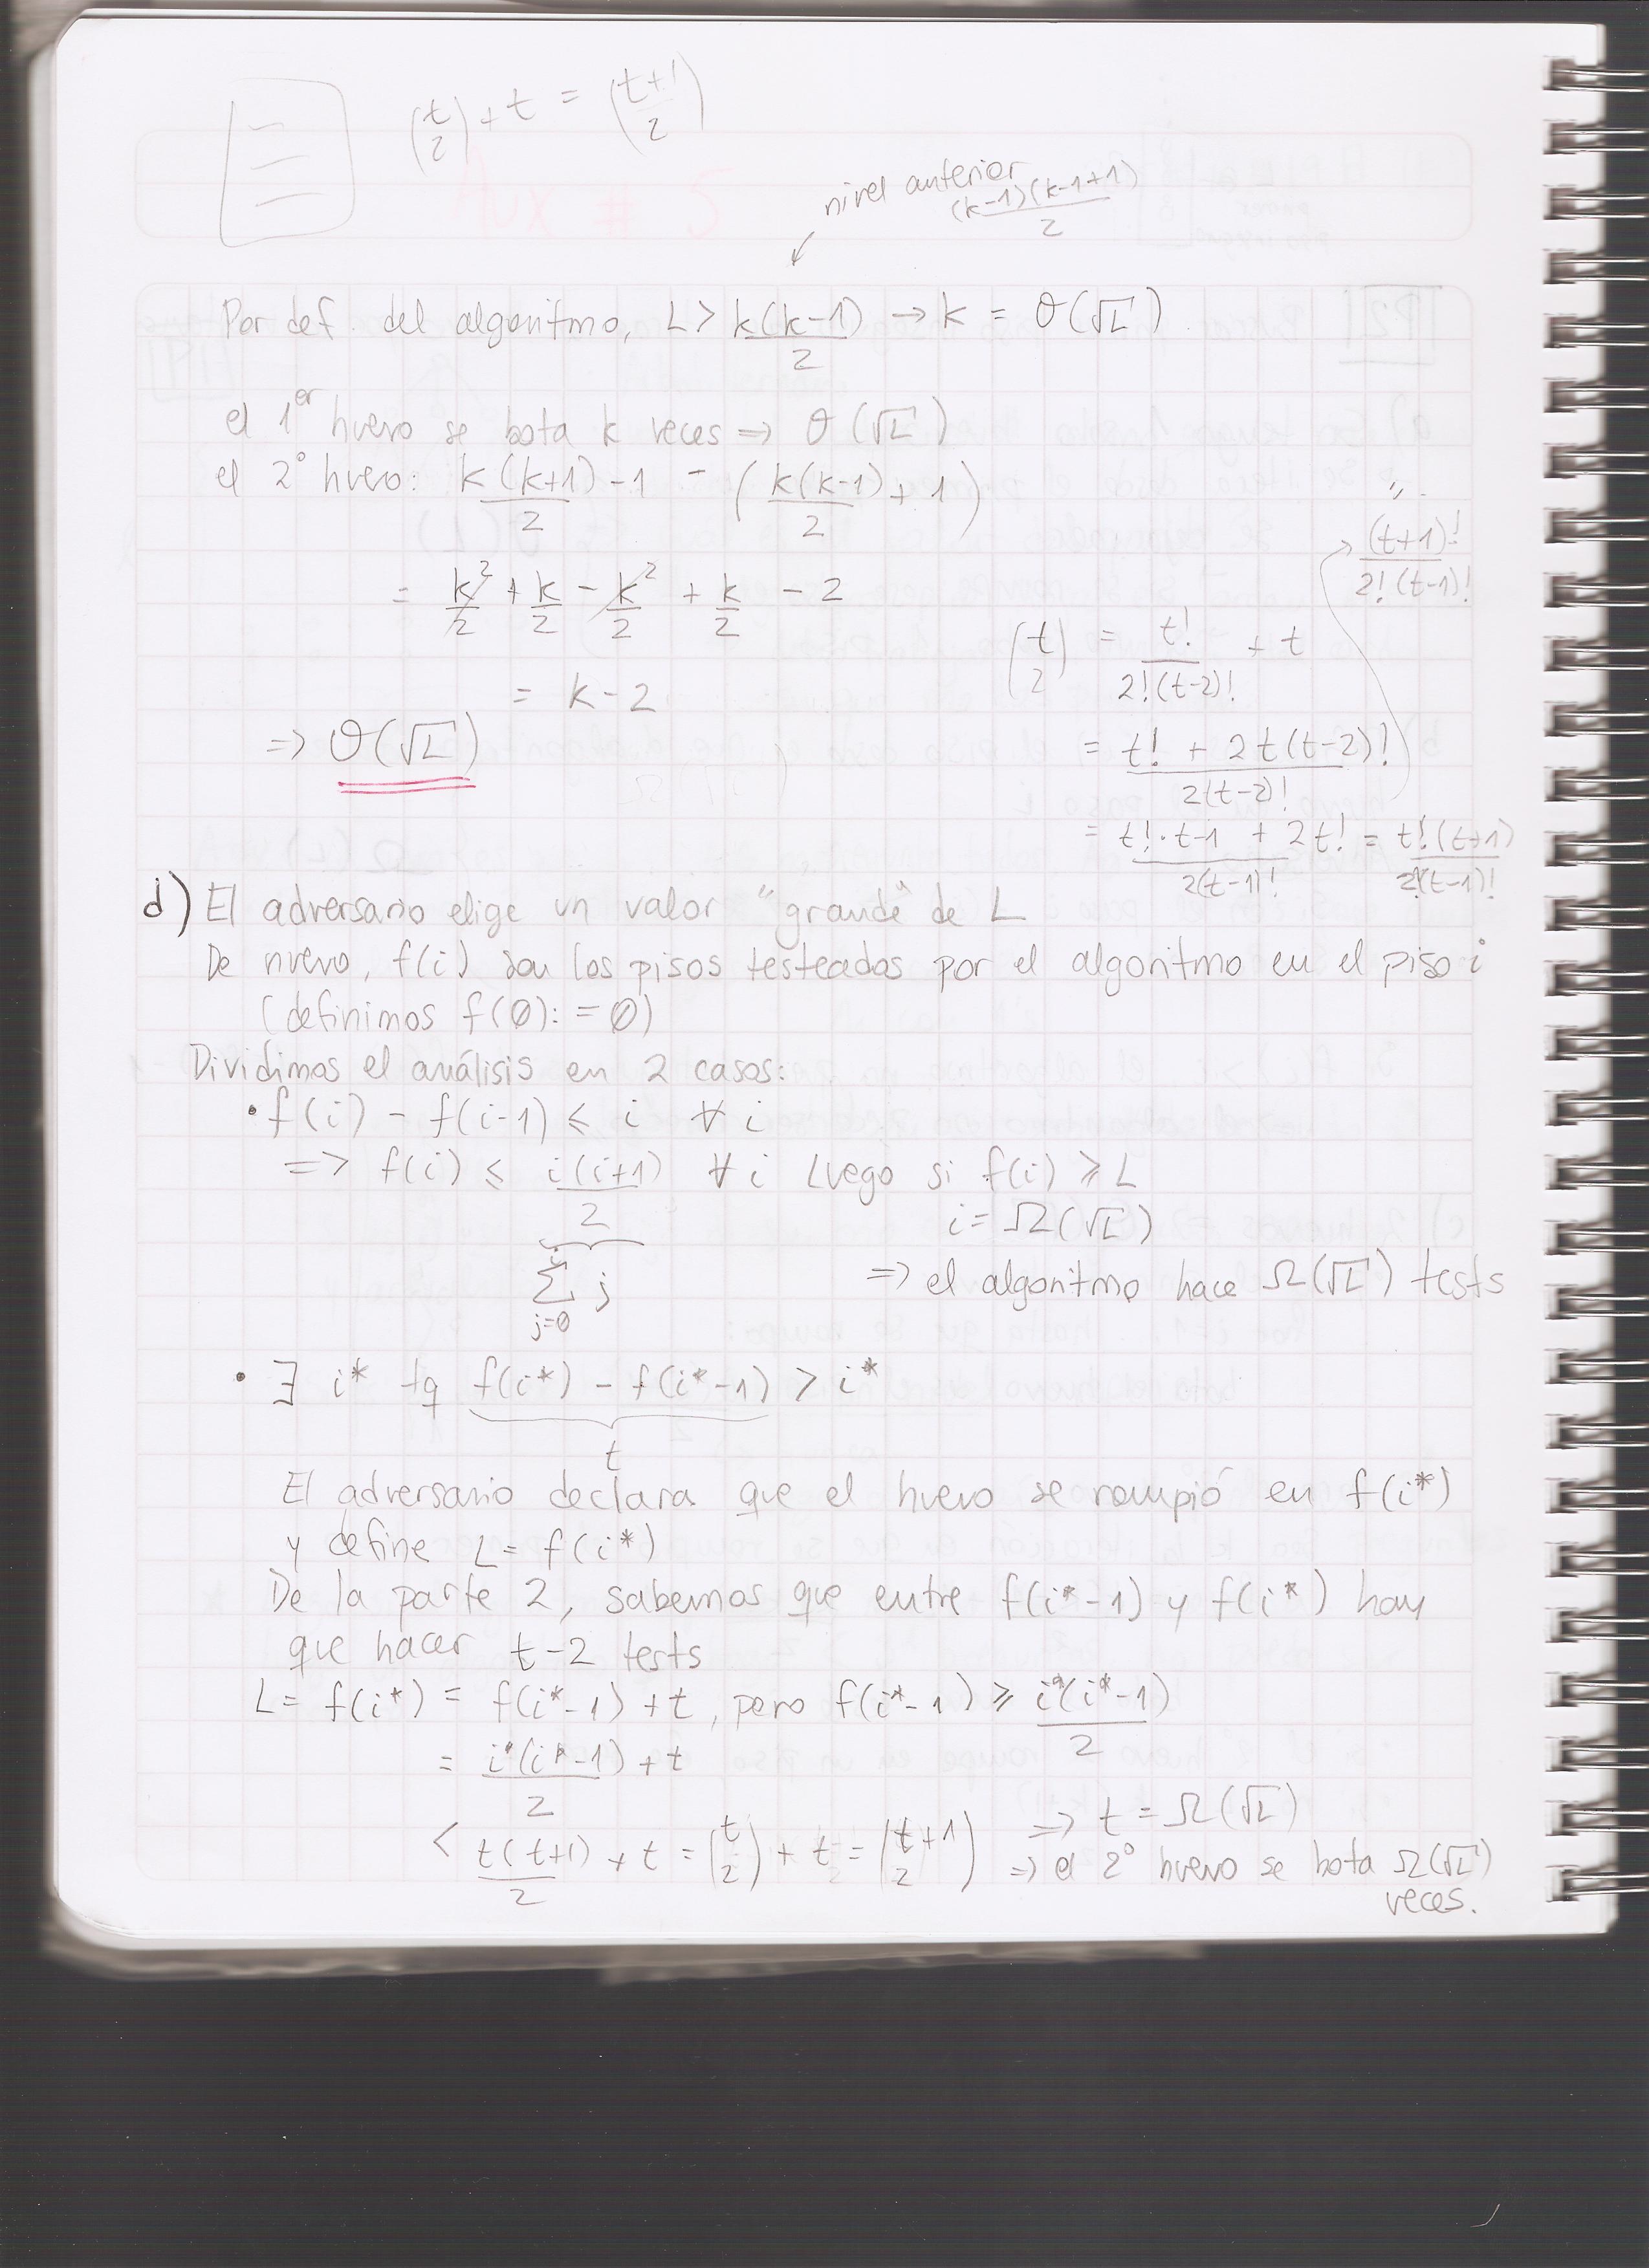 (t/2) + t = (t+1/2)
nivel anterior
(k-1)(k-1+1)/2
Por def. del algoritmo, L > k(k-1)/2 → k = O(√L)
el 1er huevo se bota k veces => O(√L)
el 2° huevo: k(k+1)/2 - 1 - (k(k-1)/2 + 1)
= k²/2 + k/2 - k²/2 + k/2 - 2
= k-2
=> O(√L)
(t/2) = t!/2!(t-2)! + t
= t! + 2t(t-2)!/2(t-2)!
= t!·t-1 + 2t!/2(t-1)! = t!(t+1)/2!(t-1)!
(t+1)!/2!(t-1)!
d) El adversario elige un valor "grande" de L
De nuevo, f(i) son los pisos testeados por el algoritmo en el piso i
(definimos f(0):=0)
Dividimos el análisis en 2 casos:
• f(i) - f(i-1) ≤ i ∀i
=> f(i) ≤ i(i+1)/2 ∀i Luego si f(i) ≥ L
i = Ω(√L)
∑ j
j=0
=> el algoritmo hace Ω(√L) tests
• ∃ i* tq f(i*) - f(i*-1) > i*
t
El adversario declara que el huevo se rompió en f(i*)
y define L = f(i*)
De la parte 2, sabemos que entre f(i*-1) y f(i*) hay
que hacer t-2 tests
L = f(i*) = f(i*-1) + t, pero f(i*-1) ≥ i*(i*-1)/2
= i*(i*-1)/2 + t
< t(t+1)/2 + t = (t/2) + t = (t+1/2)
=> t = Ω(√L)
=> el 2° huevo se bota Ω(√L)
veces.